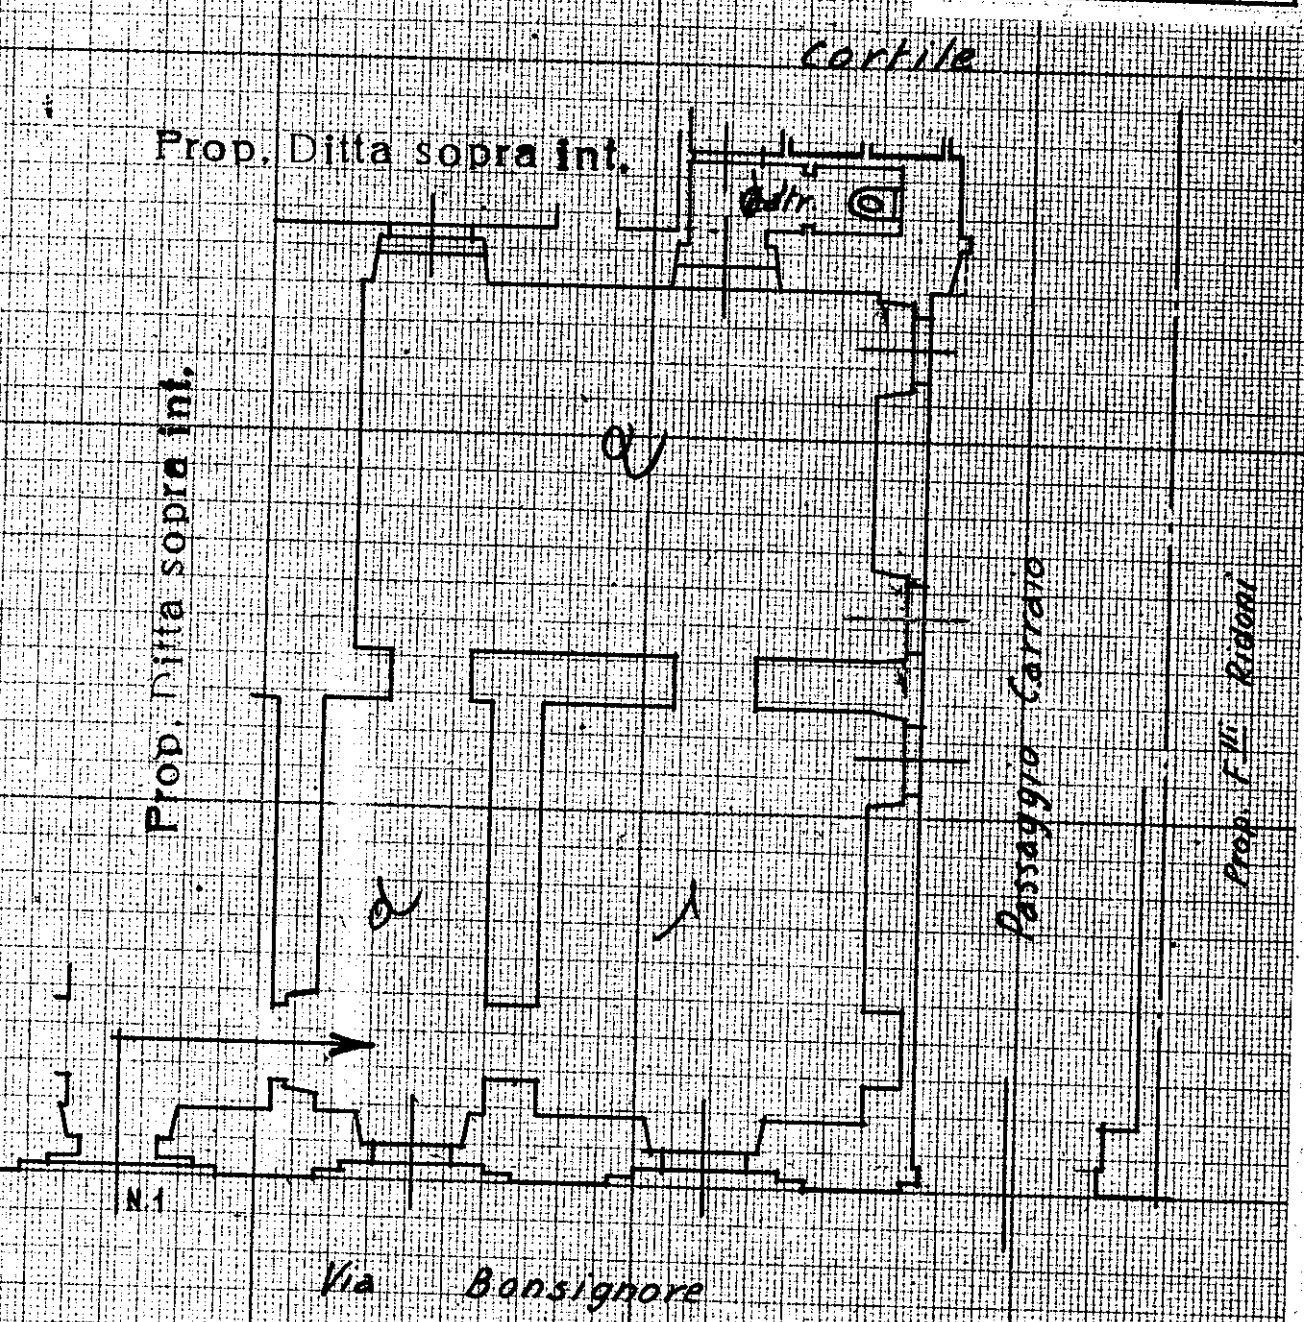 Cortile
Prop. Ditta sopra int.
Prop. Ditta sopra int.
Passaggio Carraio
Prop. F.lli Ridoni
N.1
Via Bonsignore